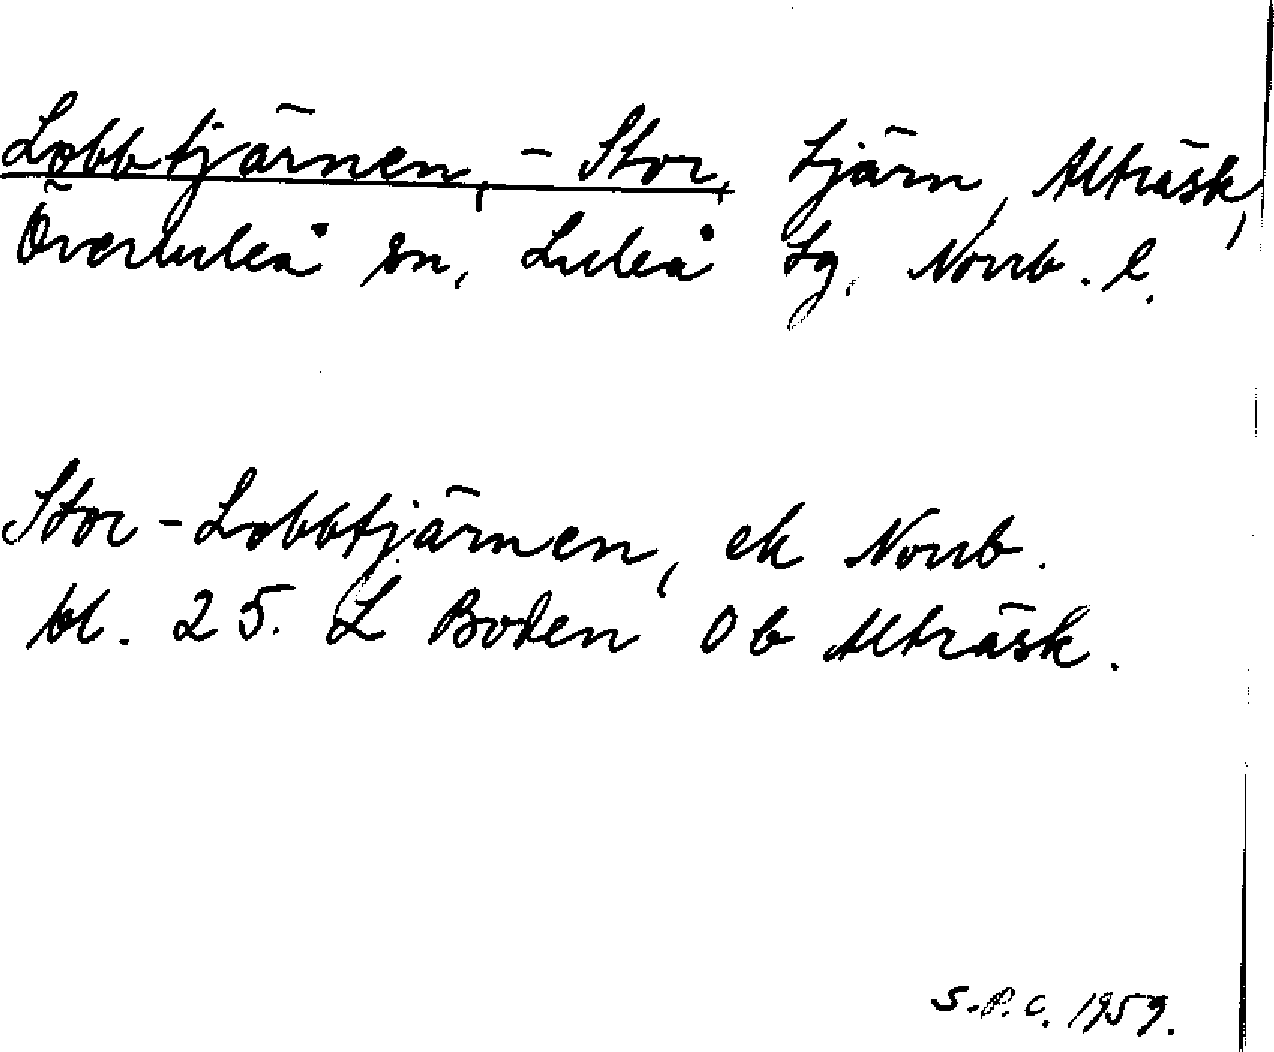 Lobbtjärnen, - Stor, tjärn, Alträsk,
Överluleå sn, Luleå tg, Norrb. l.
Stor-Lobbtjärnen, ek Norrb.
bl. 25. L Boden Ob Alträsk.
S.P.C. 1959.